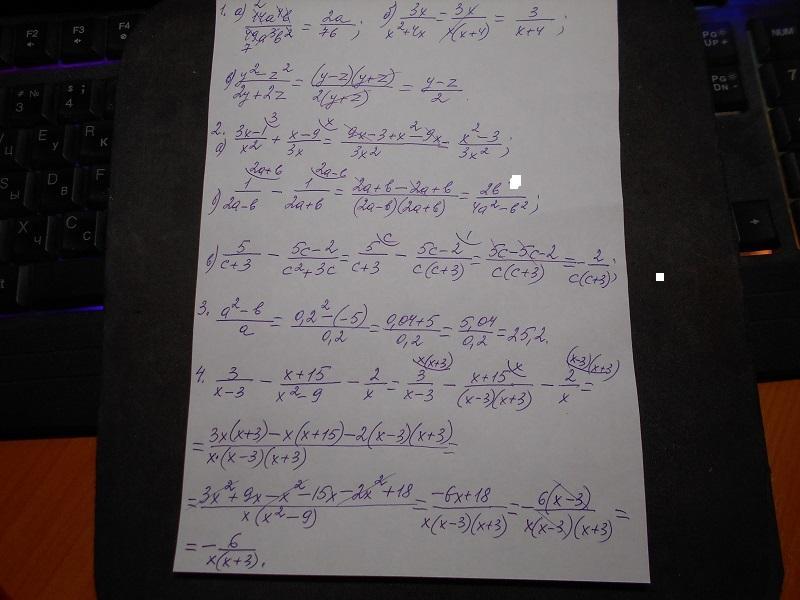 1. а) 14a⁴b / 49a³b² = 2a / 7b ; б) 3x / x²+4x = 3x / x(x+4) = 3 / x+4 ;
в) y²-z² / 2y+2z = (y-z)(y+z) / 2(y+z) = y-z / 2 .
2. а) 3x-1 / x² + x-9 / 3x = 9x-3+x²-9x / 3x² = x²-3 / 3x² ;
1 / 2a-b - 1 / 2a+b = 2a+b-2a+b / (2a-b)(2a+b) = 2b / 4a²-b² ;
в) 5 / c+3 - 5c-2 / c²+3c = 5 / c+3 - 5c-2 / c(c+3) = 5c-5c-2 / c(c+3) = - 2 / c(c+3) ;
3. a²-b / a = 0,2²-(-5) / 0,2 = 0,04+5 / 0,2 = 5,04 / 0,2 = 25,2.
4. 3 / x-3 - x+15 / x²-9 - 2 / x = 3 / x-3 - x+15 / (x-3)(x+3) - 2 / x =
= 3x(x+3)-x(x+15)-2(x-3)(x+3) / x·(x-3)(x+3) =
= 3x²+9x-x²-15x-2x²+18 / x(x²-9) = -6x+18 / x(x-3)(x+3) = - 6(x-3) / x(x-3)(x+3) =
= - 6 / x(x+3) .